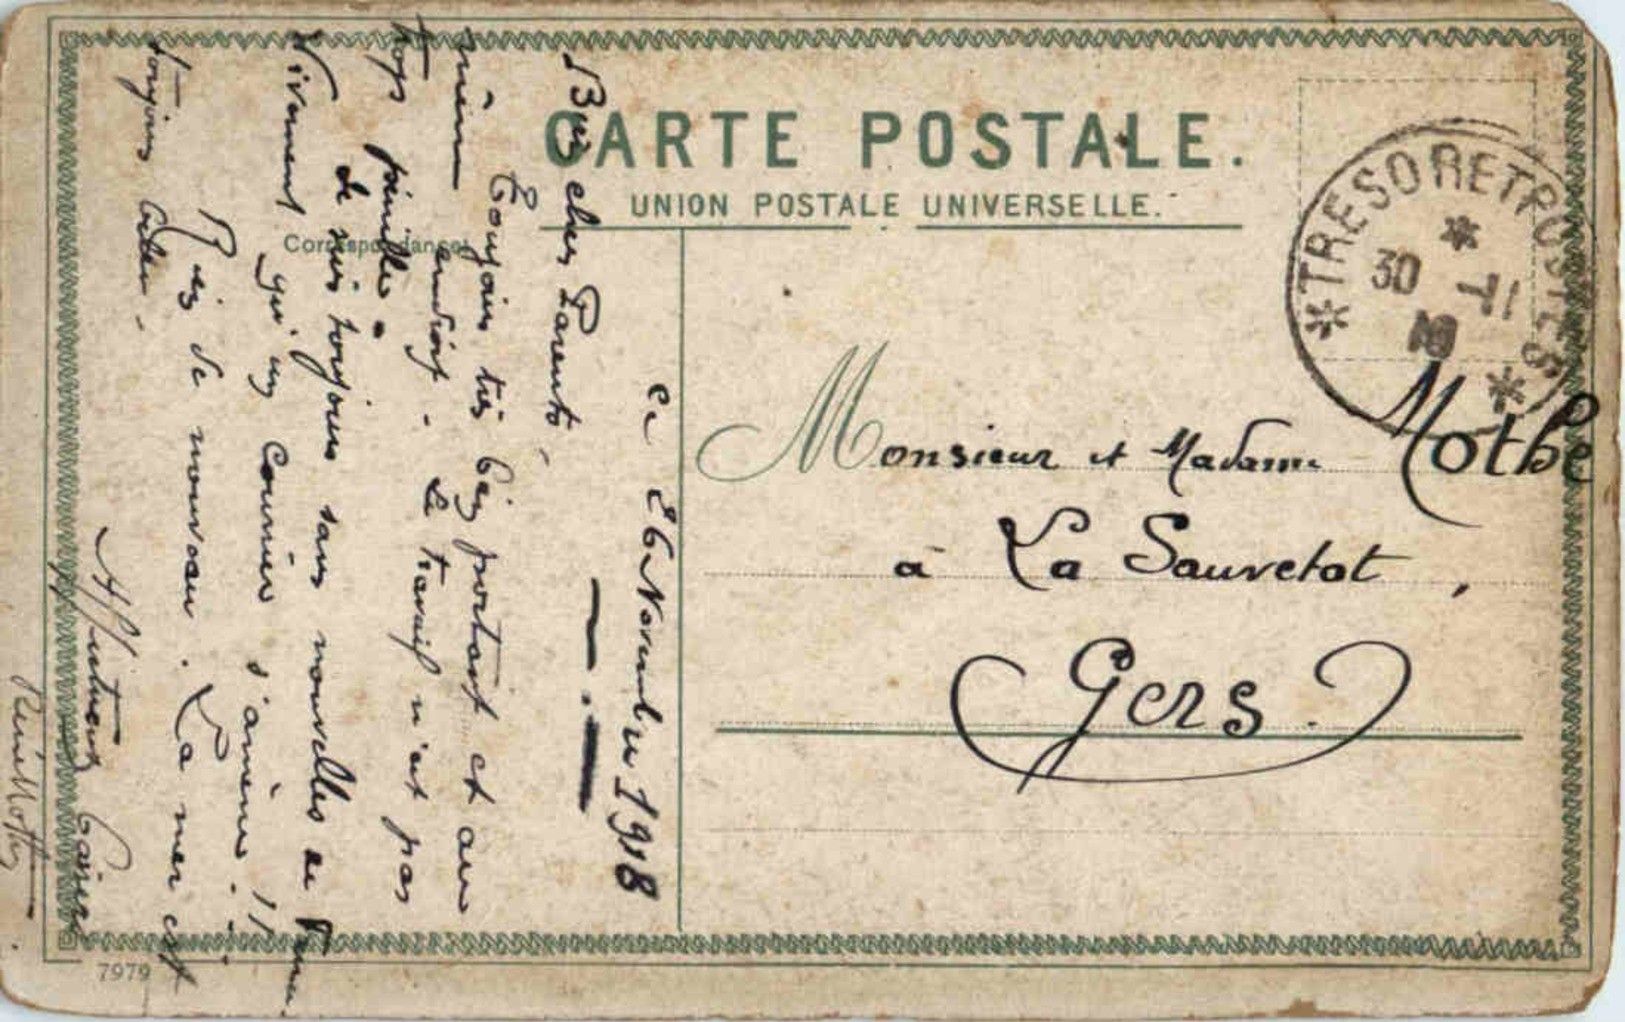 CARTE POSTALE.
UNION POSTALE UNIVERSELLE.
Correspondance
* TRESOR ET POSTES *
*
30 -11
18
Monsieur et Madame Mothe
à La Sauvetat,
Gers.
ce 26 Novembre 1918
Bien chers Parents,
Toujours très bien portant et au
même endroit. Le travail n'est pas
trop pénible.
Je suis toujours sans nouvelles de
Vivement qu'un courrier s'amène!!
Rien de nouveau. La mer est
toujours
Affectueux baisers
7979